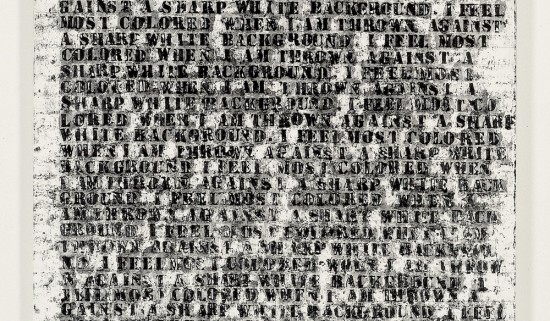 GAINST A SHARP WHITE BACKGROUND I FEEL
MOST COLORED WHEN I AM THROWN AGAINST
A SHARP WHITE BACKGROUND I FEEL MOST
COLORED WHEN I AM THROWN AGAINST A
SHARP WHITE BACKGROUND I FEEL MOST
COLORED WHEN I AM THROWN AGAINST A
SHARP WHITE BACKGROUND I FEEL MOST CO
LORED WHEN I AM THROWN AGAINST A SHARP
WHITE BACKGROUND I FEEL MOST COLORED
WHEN I AM THROWN AGAINST A SHARP WHITE
BACKGROUND I FEEL MOST COLORED WHEN
I AM THROWN AGAINST A SHARP WHITE BACK
GROUND I FEEL MOST COLORED WHEN I
AM THROWN AGAINST A SHARP WHITE BACK
GROUND I FEEL MOST COLORED WHEN I AM
THROWN AGAINST A SHARP WHITE BACKGROU
ND I FEEL MOST COLORED WHEN I AM THROW
N AGAINST A SHARP WHITE BACKGROUND I
FEEL MOST COLORED WHEN I AM THROWN A
GAINST A SHARP WHITE BACKGROUND I FEEL